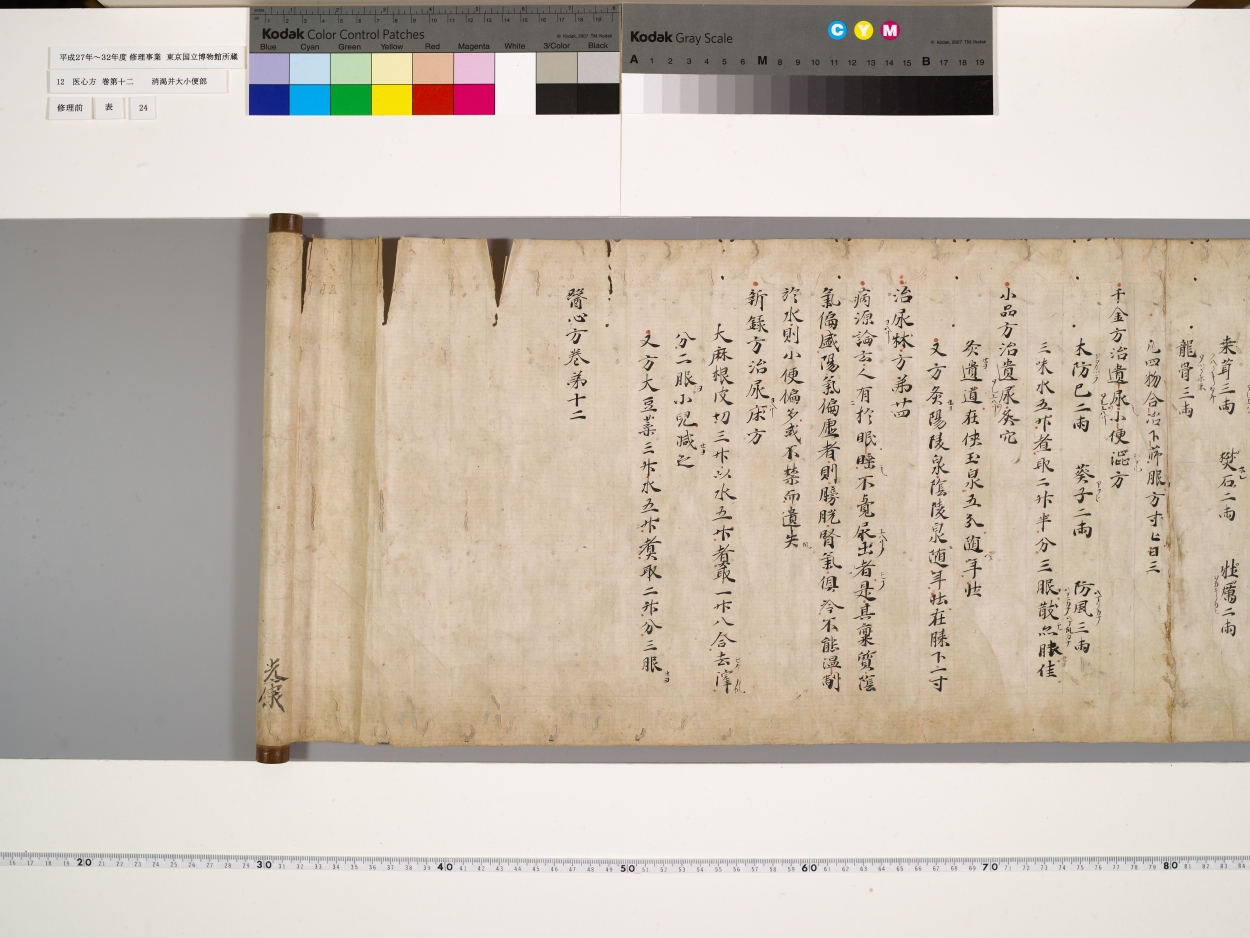 平成27年~32年度 修理事業 東京国立博物館所蔵
12 医心方 巻第十二 消渇并大小便部
修理前 表 24
Kodak Color Control Patches
© Kodak, 2007 TM: Kodak
Blue Cyan Green Yellow Red Magenta White 3/Color Black
Kodak Gray Scale
C Y M
© Kodak, 2007 TM: Kodak
A 1 2 3 4 5 6 M 8 9 10 11 12 13 14 15 B 17 18 19
茸三両 樊石二両 牡蠣二両
龍骨三両
凡四物合治下篩服方寸匕日三
千金方治遺尿小便澁方
木防已二両 葵子二両 防風三両
三味水五升煮取二升半分三服散亦佳
小品方治遺尿灸穴
灸遺道在侠玉泉五寸随年壮
又方灸陽陵泉陰陵泉随年壮在膝下一寸
治尿床方第廿四
病源論云人有於眠睡不覚尿出者是其禀質陰
氣偏盛陽氣偏虚者則膀胱腎氣倶冷不能温制
於水則小便偏多或不禁而遺失
新録方治尿床方
大麻根皮切三升以水五升煮取一升八合去滓
分二服小兒減之
又方大豆葉三升水五升煮取二升分三服
醫心方巻第十二
20 30 40 50 60 70 80